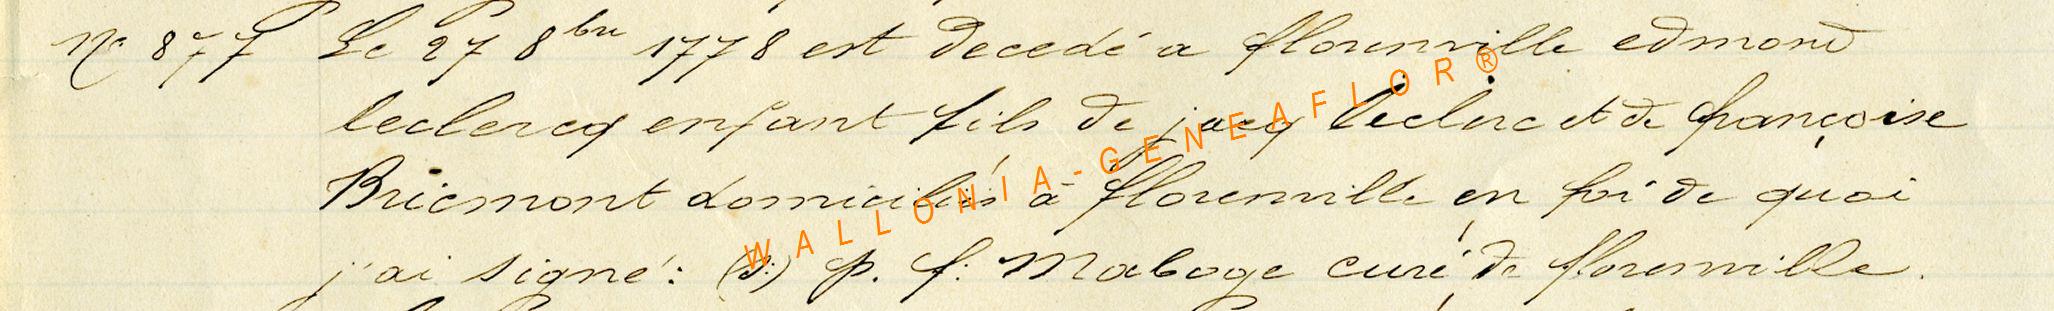 No 877 Le 27 8bre 1778 est decedé a florenville edmond
leclercq enfant fils de jacq leclerc et de françoise
Bricmont domiciliés à florenville en foi de quoi
j'ai signé: (S:) P. f: Maboge curé de florenville.
WALLONIA-GENEAFLOR®